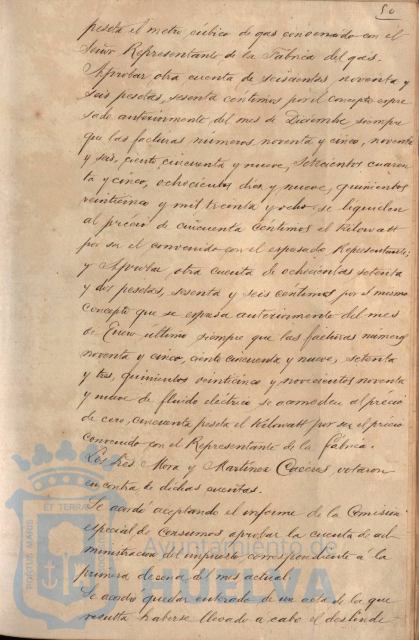 50
peseta el metro cúbico de gas convenido con el
Señor Representante de la Fábrica del gas.
Aprobar otra cuenta de seiscientas noventa y
seis pesetas, sesenta céntimos por el concepto expre
sado anteriormente del mes de Diciembre siempre
que las facturas números, noventa y cinco, noventa
y seis, ciento cincuenta y nueve, setecientos cuaren
ta y cinco, ochocientos diez y nueve, quinientos
veinticinco y mil treinta y ocho se liquiden
al précio de cincuenta céntimos el Kilowatt
por ser el convenido con el expresado Representante;
y Aprobar otra cuenta de ochocientas setenta
y dos pesetas, sesenta y seis céntimos por el mismo
concepto que se expresa anteriormente del mes
de Enero último siempre que las facturas números
noventa y cinco, ciento cincuenta y nueve, setenta
y tres, quinientos veinticinco y novecientos noventa
y nueve de fluido eléctrico se acomoden al précio
de cero, cincuenta peseta el Kilowatt por ser el precio
convenido con el Representante de la fábrica.
Los Sres Mora y Martinez Caceres votaron
en contra de dichas cuentas.
Se acordó aceptando el informe de la Comision
especial de Consumos aprobar la cuenta de ad-
ministracion del impuesto, correspondiente á la
primera decena del mes actual.
Se acordó quedar enterado de un acta de la que
resulta haberse llevado a cabo el deslinde
PORTUS MARIS
ET TERRAE
Ayuntamiento de
HUELVA